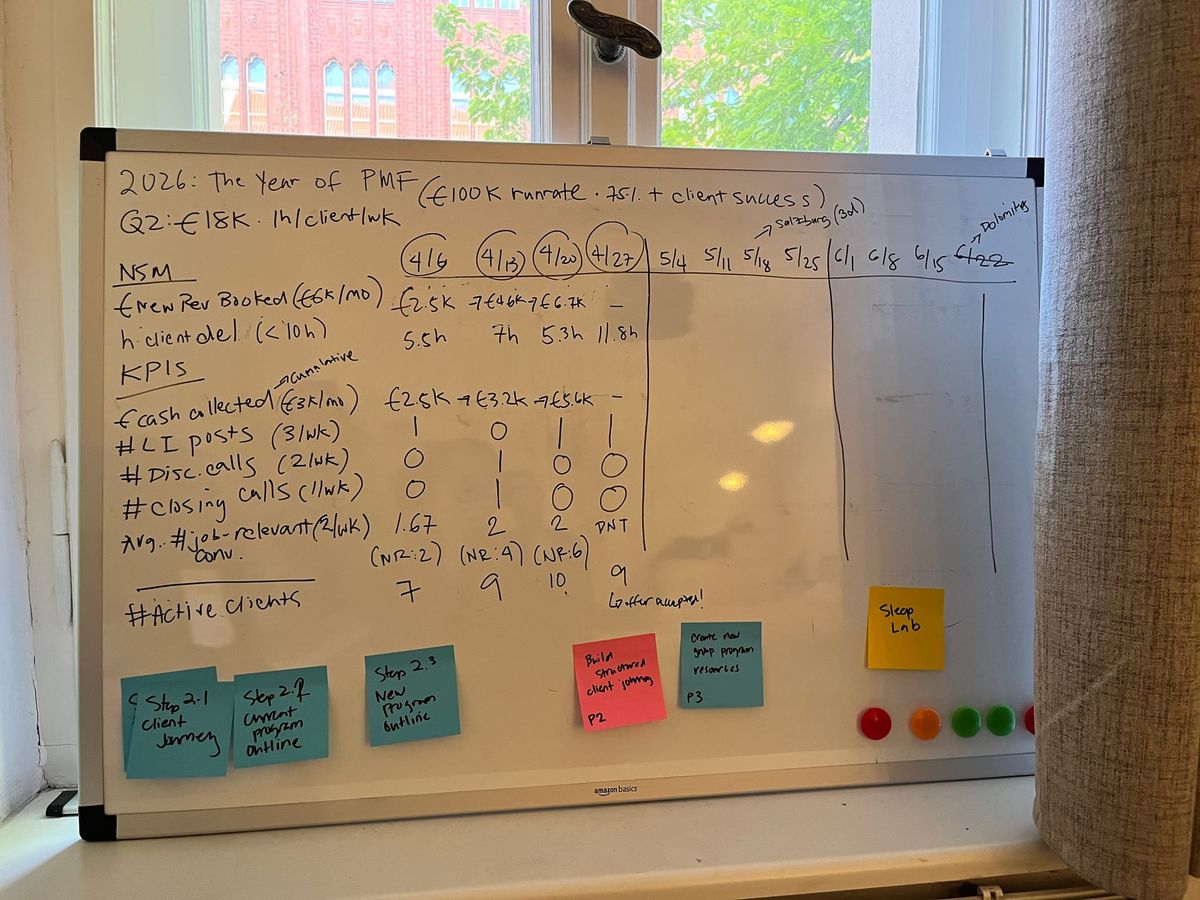 2026: The Year of PMF (€100K runrate · 75% + client success)
Q2: €18K · 1h/client/wk
→ Salzburg (3d)
→ Dolomites
NSM 4/6 4/13 4/20 4/27 5/4 5/11 5/18 5/25 6/1 6/8 6/15 6/22
€ New Rev Booked (€6K/mo) €2.5K → €4.6K → €6.7K –
h. client del (<10h) 5.5h 7h 5.3h 11.8h
KPIs
→ Cumulative
€ cash collected (€3K/mo) €2.5K → €3.2K → €5.6K –
# LI posts (3/wk) 1 0 1 1
# Disc. calls (2/wk) 0 1 0 0
# closing calls (1/wk) 0 1 0 0
Avg. # job-relevant (2/wk) 1.67 2 2 DNT
conv. (NR:2) (NR:4) (NR:6)
# Active Clients 7 9 10 9
↳ offer accepted!
Step 2.1
Client
Journey
Step 2.2
Current
program
outline
Step 2.3
New
Program
outline
Build
structured
client journey
P2
Create new
group program
resources
P3
Sleep
Lab
amazon basics